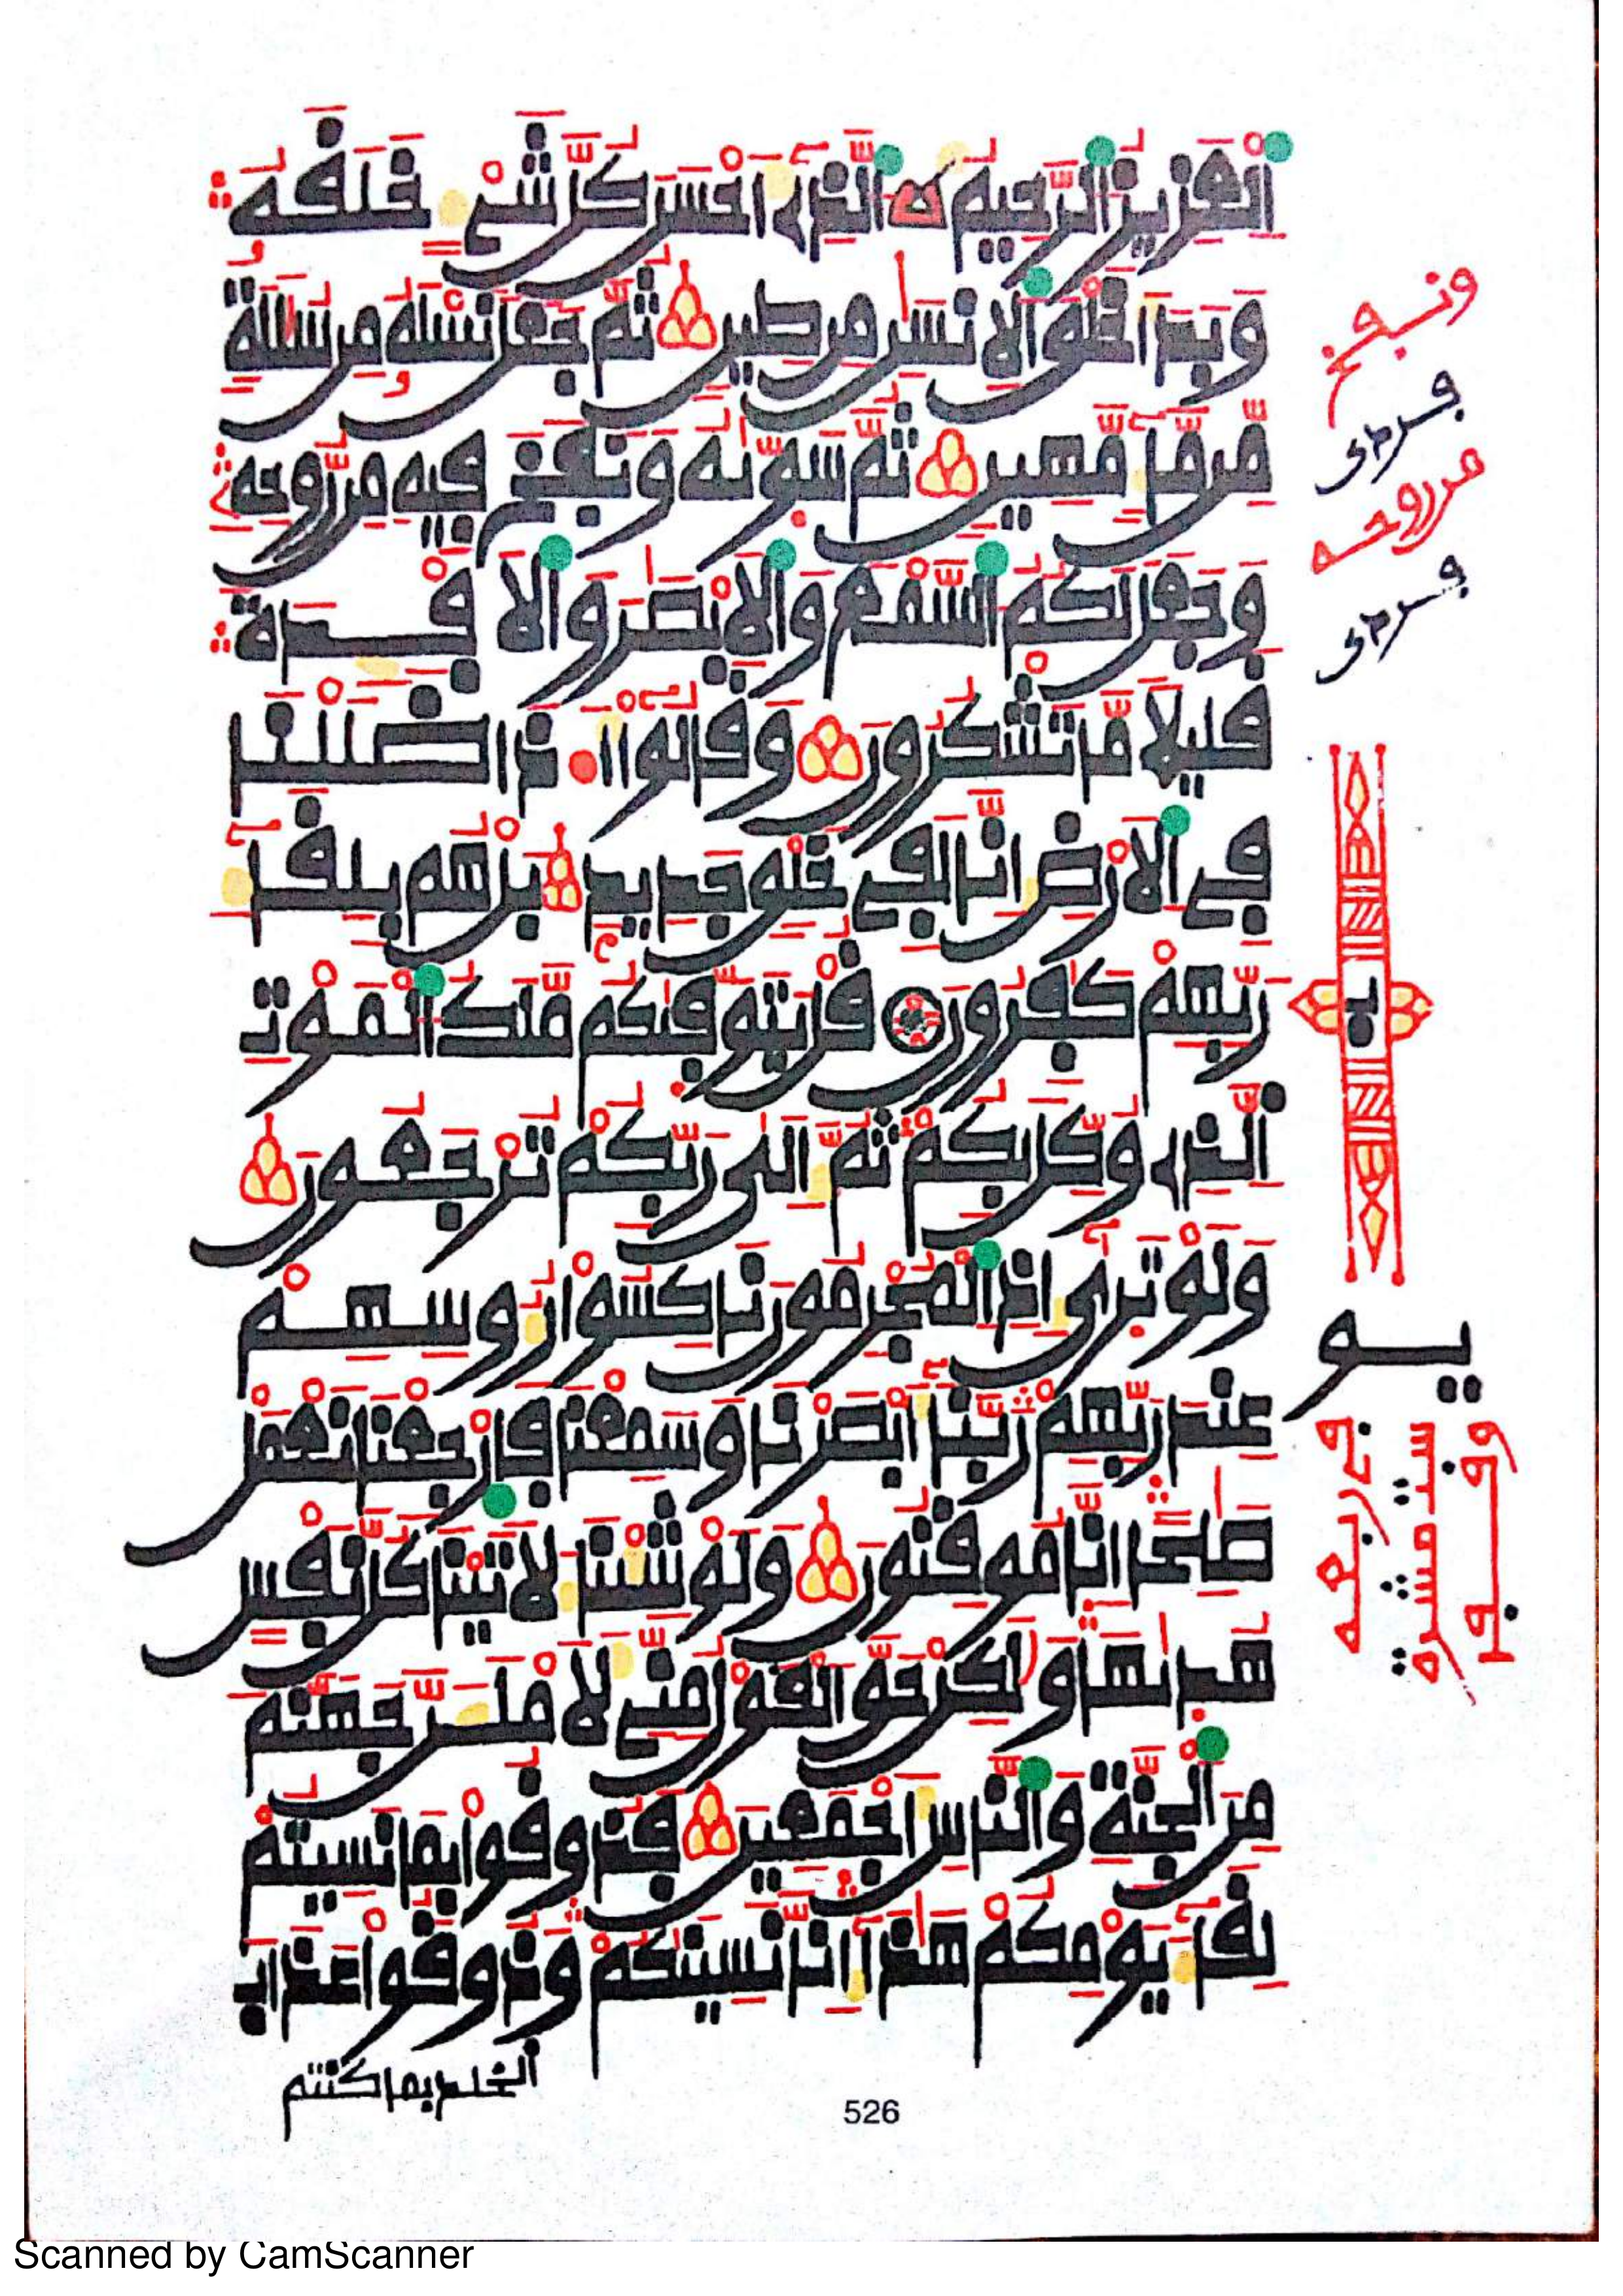 ٱلْعَزِيزُ ٱلرَّحِيمُ ٱلَّذِىٓ أَحْسَنَ كُلَّ شَىْءٍ خَلَقَهُۥ
وَبَدَأَ خَلْقَ ٱلْإِنسَٰنِ مِن طِينٍ ثُمَّ جَعَلَ نَسْلَهُۥ مِن سُلَٰلَةٍ
مِّن مَّآءٍ مَّهِينٍ ثُمَّ سَوَّىٰهُ وَنَفَخَ فِيهِ مِن رُّوحِهِۦ
وَجَعَلَ لَكُمُ ٱلسَّمْعَ وَٱلْأَبْصَٰرَ وَٱلْأَفْـِٕدَةَ
قَلِيلًا مَّا تَشْكُرُونَ وَقَالُوٓا۟ أَ۟ذَا ضَلَلْنَا
فِى ٱلْأَرْضِ إِنَّا لَفِى خَلْقٍ جَدِيدٍ بَلْ هُم بِلِقَآءِ
رَبِّهِمْ كَٰفِرُونَ قُلْ يَتَوَفَّىٰكُم مَّلَكُ ٱلْمَوْتِ
ٱلَّذِى وُكِّلَ بِكُمْ ثُمَّ إِلَىٰ رَبِّكُمْ تُرْجَعُونَ
وَلَوْ تَرَىٰٓ إِذِ ٱلْمُجْرِمُونَ نَاكِسُوا۟ رُءُوسِهِمْ
عِندَ رَبِّهِمْ رَبَّنَآ أَبْصَرْنَا وَسَمِعْنَا فَٱرْجِعْنَا نَعْمَلْ
صَٰلِحًا إِنَّا مُوقِنُونَ وَلَوْ شِئْنَا لَأَتَيْنَا كُلَّ نَفْسٍ
هُدَىٰهَا وَلَٰكِنْ حَقَّ ٱلْقَوْلُ مِنِّى لَأَمْلَأَنَّ جَهَنَّمَ
مِنَ ٱلْجِنَّةِ وَٱلنَّاسِ أَجْمَعِينَ فَذُوقُوا۟ بِمَا نَسِيتُمْ
لِقَآءَ يَوْمِكُمْ هَٰذَآ إِنَّا نَسِينَٰكُمْ وَذُوقُوا۟ عَذَابَ
ٱلْخُلْدِ بِمَا كُنتُمْ
ونفخ
فردى
من روحه
فردى
526
Scanned by CamScanner